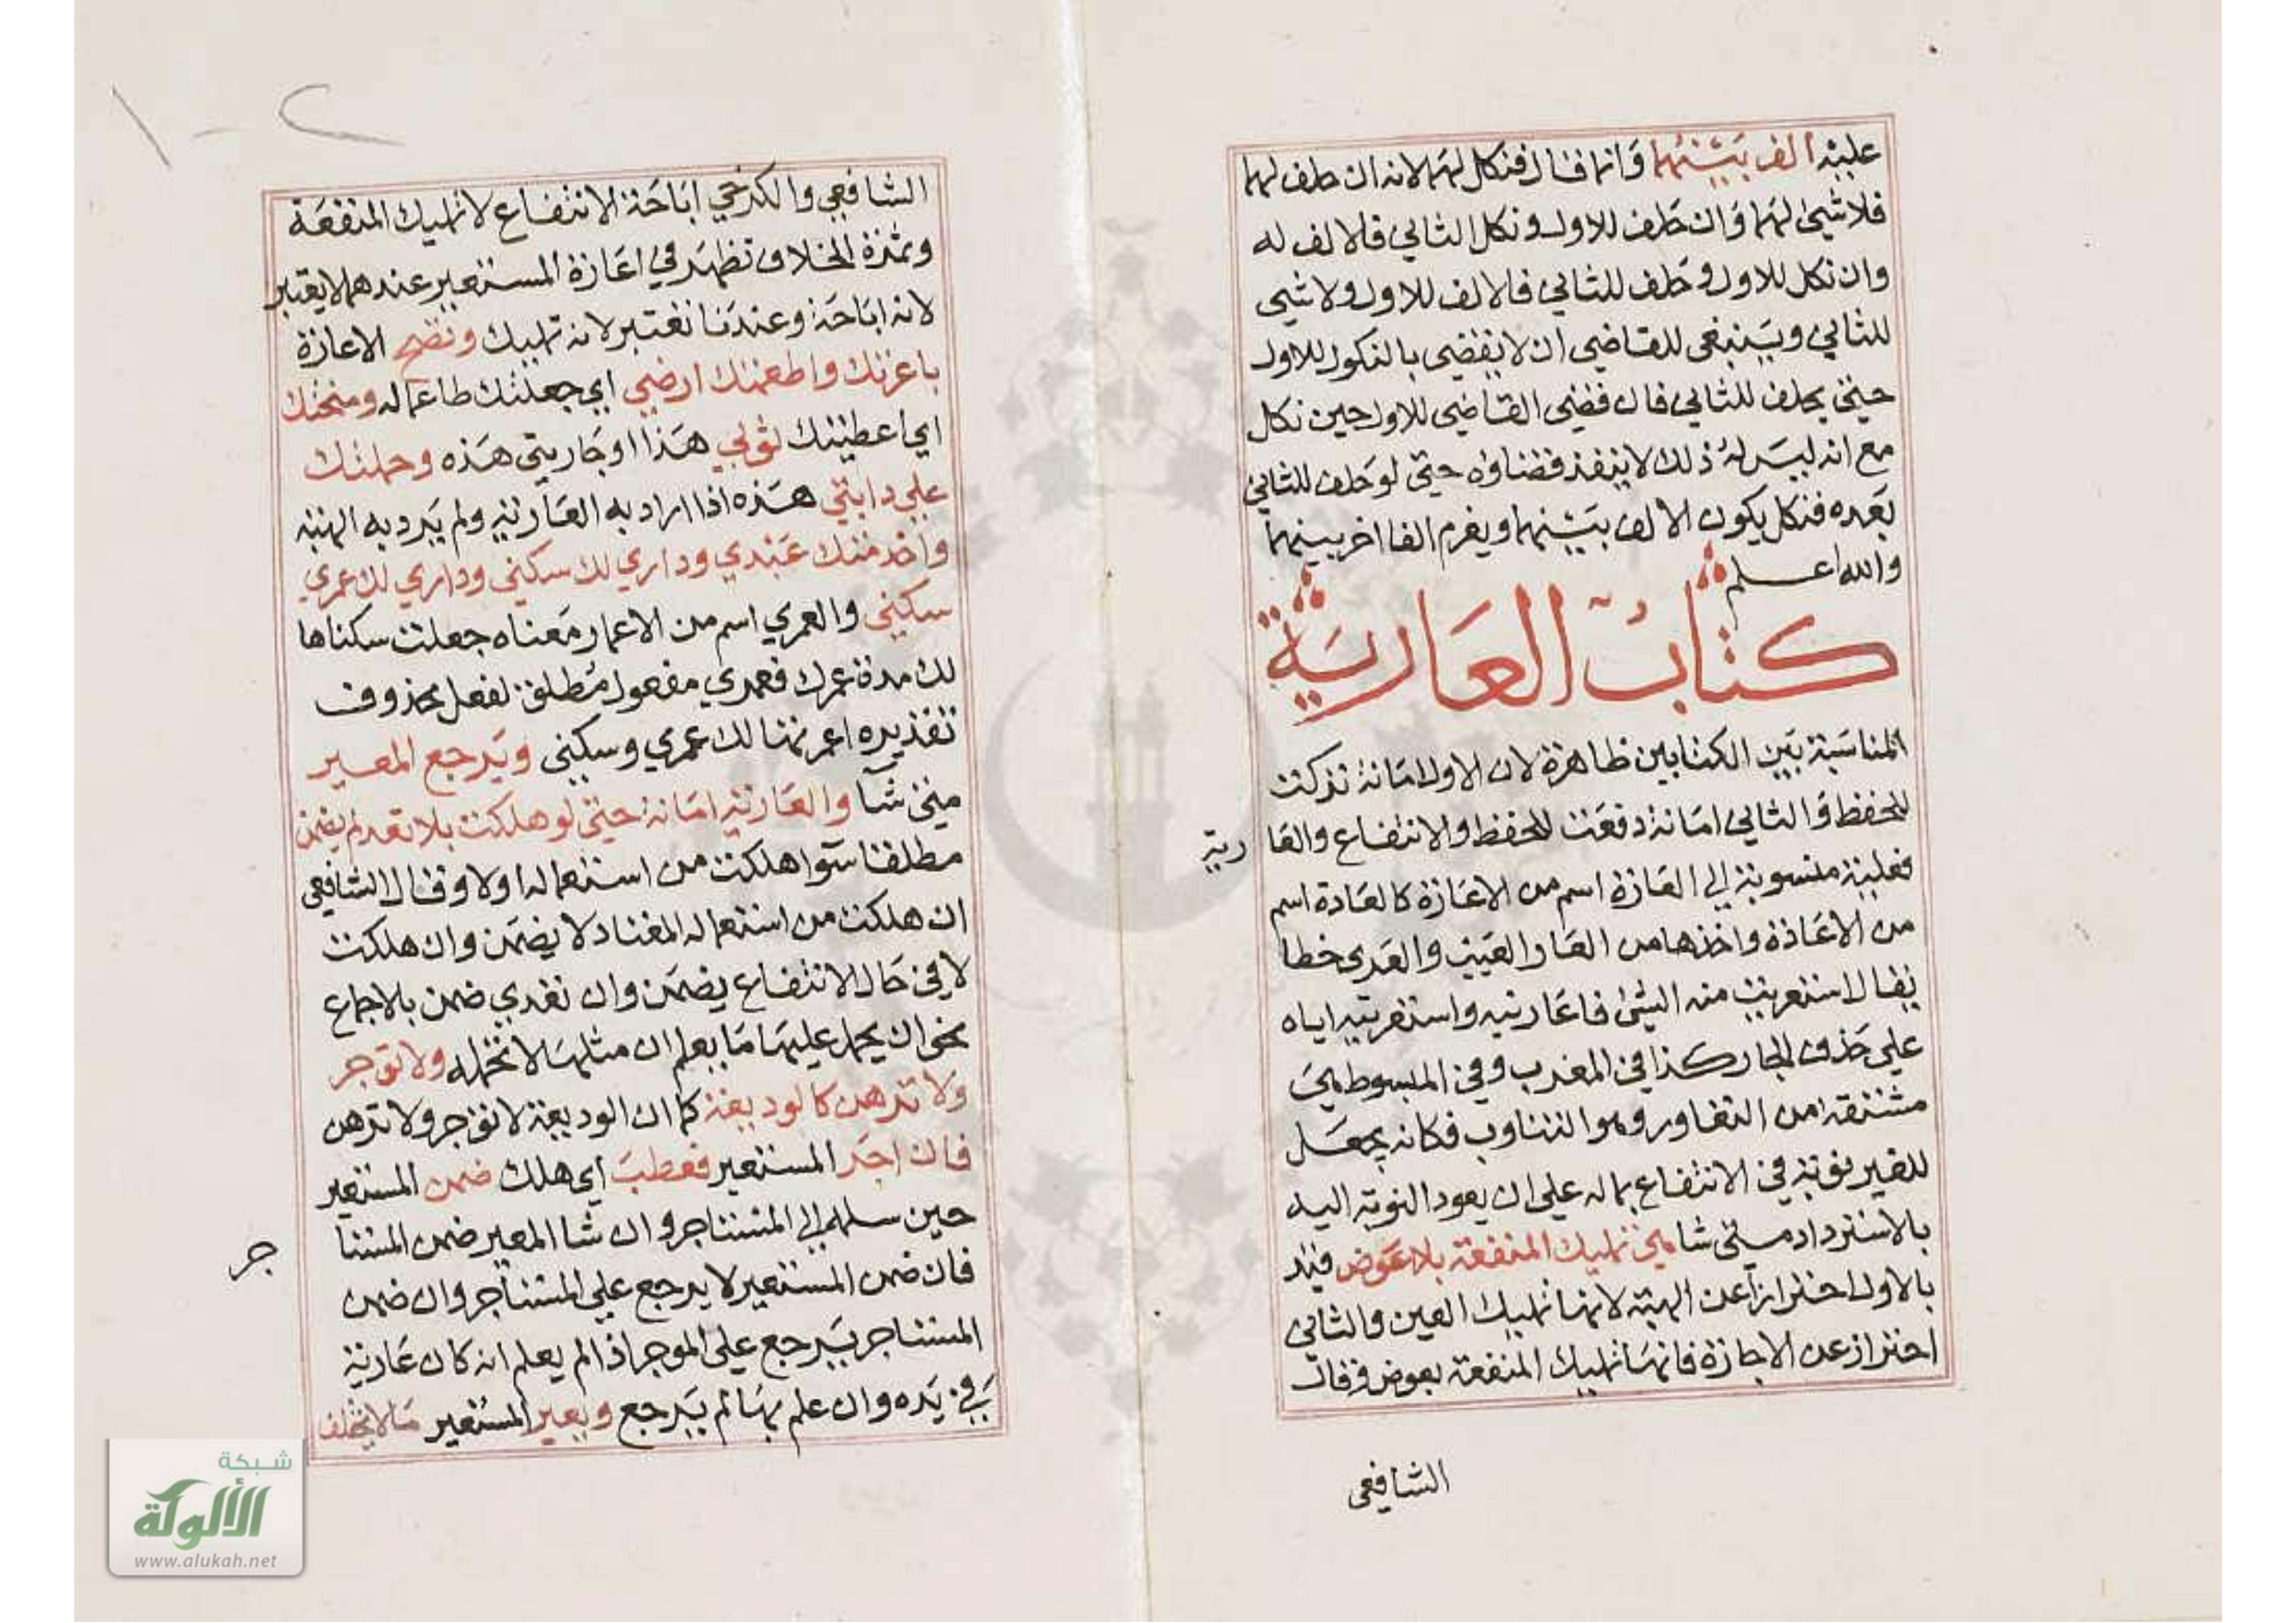 عليه الف بينهما وانما قال فنكل لهما لانه ان حلف لهما
فلا شيئ لهما وان حلف للاول ونكل الثاني فالالف له
وان نكل للاول وحلف للثاني فالالف للاول ولا شيى
للثاني وينبغي للقاضي ان لا يقضي بالنكول للاول
حتي يحلف للثاني فان قضي القاضي للاول حين نكل
مع انه ليس له ذلك لا ينفذ قضاؤه حتي لو حلف للثاني
بعده فنكل يكون الالف بينهما ويغرم الفا اخر بينهما
والله اعلم
كتاب العارية
المناسبة بين الكتابين ظاهرة لان الاول امانة تركت
للحفظ والثاني امانة دفعت للحفظ والانتفاع والعا
رية
فعلية منسوبة الي العارة اسم من الاعارة كالغادة اسم
من الاغادة واخذها من العار والعيب والعري خطا
يقال استعريت منه الشئ فاعارنيه واستعريته اياه
علي حذف الجار كذا في المغرب وفي المبسوط هي
مشتقة من التعاور وهو التناوب فكانه يجعل
للغير نوبة في الانتفاع بماله علي ان يعود النوبة اليه
بالاسترداد متي شا هي تمليك المنفعة بلا عوض قيد
بالاول احترازا عن الهبة لانها تمليك العين والثاني
احتراز عن الاجارة فانها تمليك المنفعة بعوض وقال
الشافعي
١-٢
الشافعي والكرخي اباحة الانتفاع لا تمليك المنفعة
وثمرة الخلاف تظهر في اعارة المستعير عندهما لا يعتبر
لانه اباحة وعندنا تعتبر لانه تمليك وتصح الاعارة
باعرتك واطعمتك ارضي اي جعلتك طاعما له ومنحتك
اي اعطيتك ثوبي هذا او جاريتي هذه وحملتك
علي دابتي هذه اذا اراد به العارية ولم يرد به الهبة
واخدمتك عبدي وداري لك سكني وداري لك عمري
سكني والعمري اسم من الاعمار معناه جعلت سكناها
لك مدة عمرك فعمري مفعول مطلق لفعل محذوف
تقديره اعمرتها لك عمري وسكني ويرجع المعير
متي شآ والعارية امانة حتي لو هلكت بلا تعد لم يضمن
مطلقا سوآ هلكت من استعماله اولا وقال الشافعي
ان هلكت من استعماله المعتاد لا يضمن وان هلكت
لا في حال الانتفاع يضمن وان تعدي ضمن بالاجماع
نحو ان يحمل عليها ما يعلم ان مثلها لا تحمله ولا توجر
ولا ترهن كالوديعة كما ان الوديعة لا توجر ولا ترهن
فان اجر المستعير فعطب اي هلك ضمن المستعير
حين سلمه الي المستاجر وان شا المعير ضمن المستا
جر
فان ضمن المستعير لا يرجع علي المستأجر وان ضمن
المستاجر يرجع علي الموجر اذا لم يعلم انه كان عارية
في يده وان علم بها لم يرجع ويعير المستعير ما لا يختلف
شبكة
الألوكة
www.alukah.net